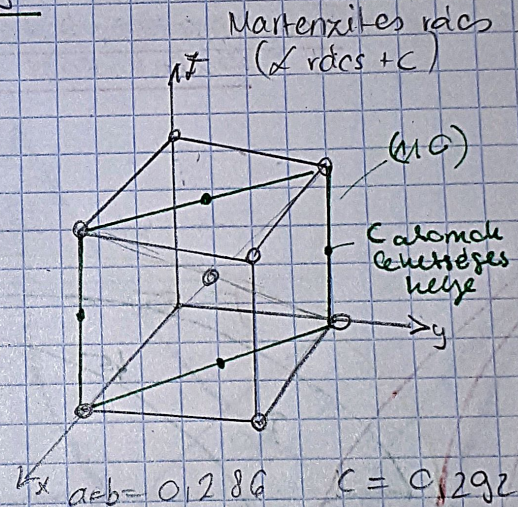 Martenzites rács
(α rács + C)
z
(110)
C atomok
lehetséges
helye
y
x a=b= 0,286 c = 0,292